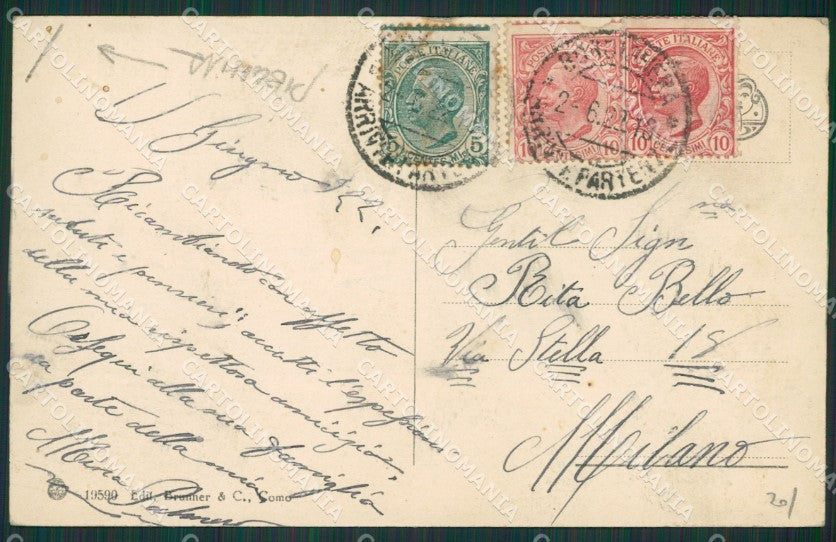 1/ Giugno 922.
Ricambiando con affetto
saluti e pensieri, accetti l'espressione
della mia rispettosa amicizia,
Ossequi alla sua famiglia
da parte della mia
19590 Edit. Brunner & C., Como
POSTE ITALIANE
5
POSTE ITALIANE
10
CENTESIMI
POSTE ITALIANE
10
CENTESIMI
2-6.22.18
Gentil Sign na
Rita Bello
Via Stella 18
Milano
20/
CARTOLINOMANIA